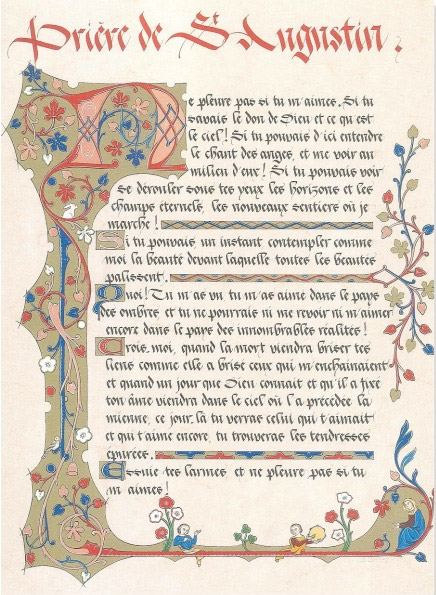 Prière de St Augustin.
Ne pleure pas si tu m'aimes. Si tu
savais le don de Dieu et ce qu'est
le ciel ! Si tu pouvais d'ici entendre
le chant des anges, et me voir au
milieu d'eux ! Si tu pouvais voir
se dérouler sous tes yeux les horizons et les
champs éternels, les nouveaux sentiers où je
marche !
Si tu pouvais, un instant contempler comme
moi la beauté devant laquelle toutes les beautés
palissent.
Quoi ! Tu m'as vu tu m'as aimé dans le pays
des ombres, et tu ne pourrais ni me revoir ni m'aimer
encore dans le pays des innombrables réalités !
Crois-moi, quand la mort viendra briser tes
liens comme elle a brisé ceux qui m'enchaînaient
et quand un jour que Dieu connaît et qu'il a fixé
ton âme viendra dans le ciel où l'a précédée la
mienne, ce jour là tu verras celui qui t'aimait
et qui t'aime encore, tu trouveras les tendresses
épurées.
Essuie tes larmes, et ne pleure pas si tu
m'aimes !